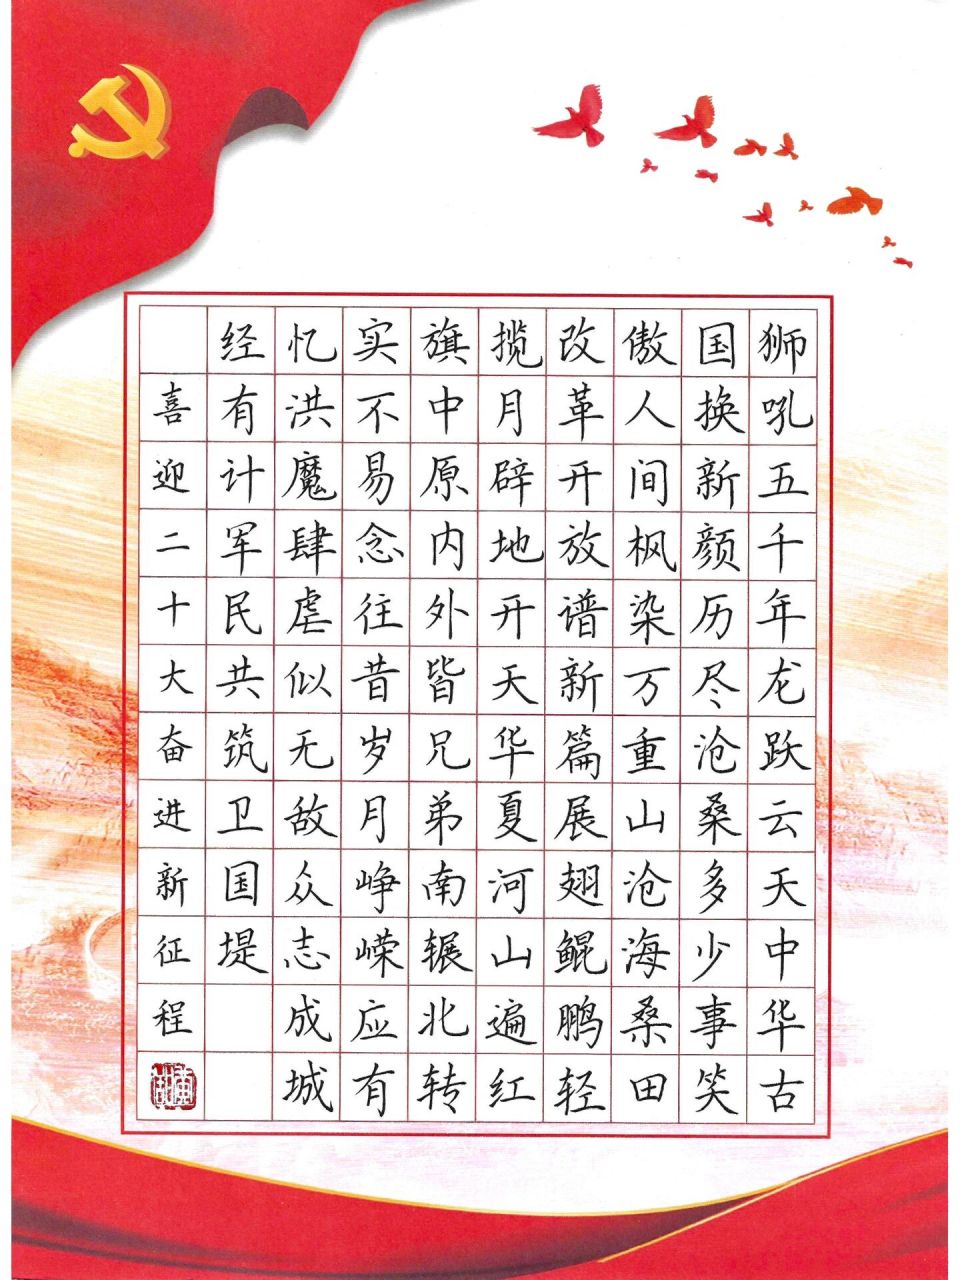 狮吼五千年龙跃云天中华古
国换新颜历尽沧桑多少事笑
傲人间枫染万重山沧海桑田
改革开放谱新篇展翅鲲鹏轻
揽月辟地开天华夏河山遍红
旗中原内外皆兄弟南辗北转
实不易念往昔岁月峥嵘应有
忆洪魔肆虐似无敌众志成城
经有计军民共筑卫国堤
喜迎二十大奋进新征程